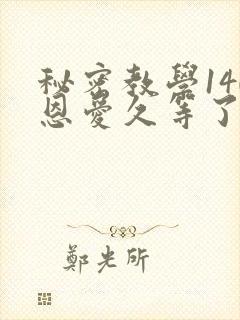 秘密教學14
恩愛久等了
鄭光所